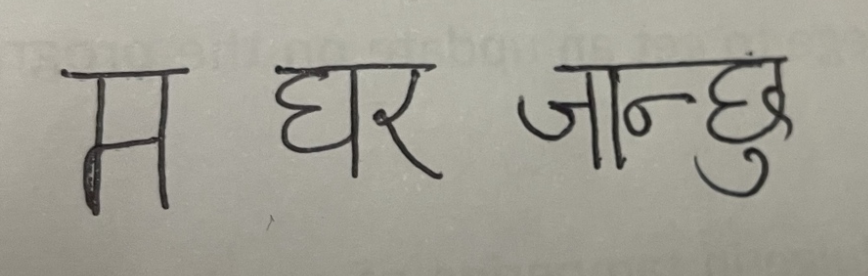 म घर जान्छु